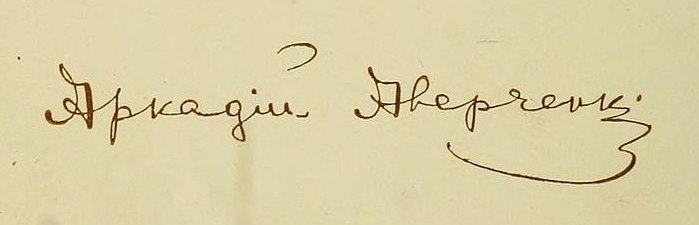 Аркадій Аверченк.